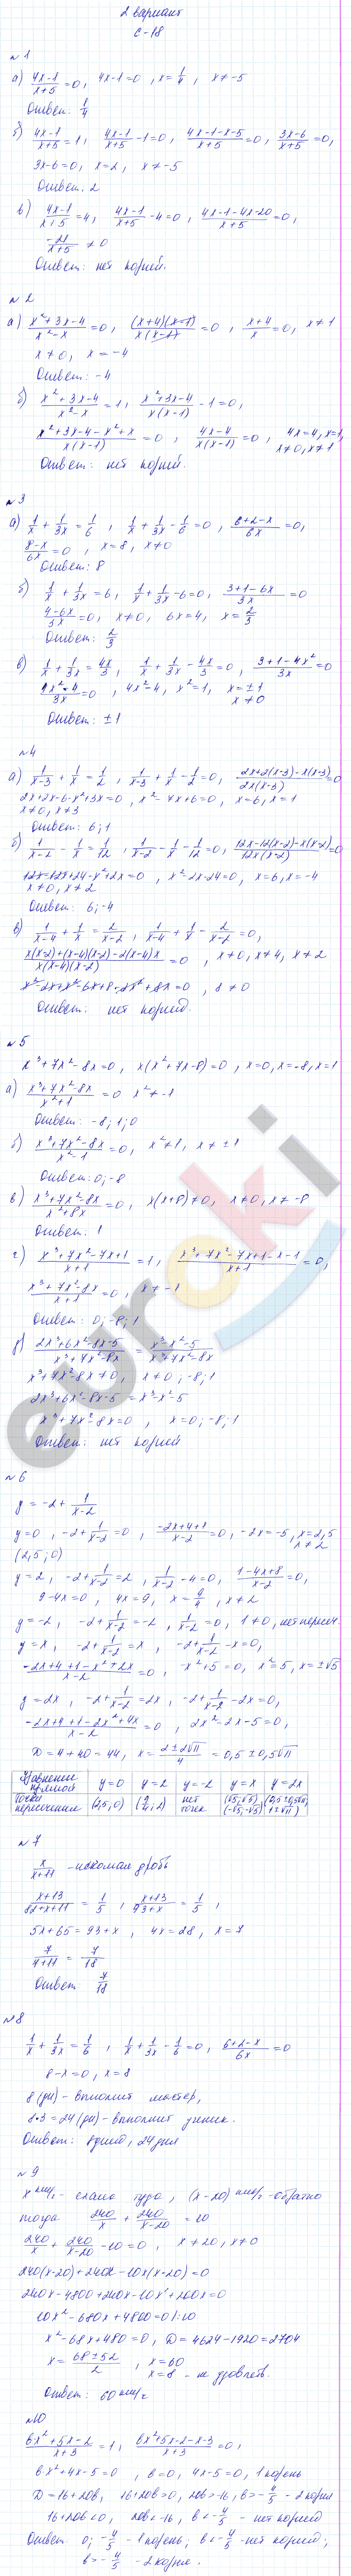 2 вариант
С-18
№1
а) (4x-1)/(x+5) = 0, 4x-1=0, x=1/4, x≠-5
Ответ: 1/4
б) (4x-1)/(x+5) = 1, (4x-1)/(x+5) - 1 = 0, (4x-1-x-5)/(x+5) = 0, (3x-6)/(x+5) = 0,
3x-6=0, x=2, x≠-5
Ответ: 2
в) (4x-1)/(x+5) = 4, (4x-1)/(x+5) - 4 = 0, (4x-1-4x-20)/(x+5) = 0,
-21/(x+5) ≠ 0
Ответ: нет корней.
№2
а) (x²+3x-4)/(x²-x) = 0, (x+4)(x-1)/(x(x-1)) = 0, (x+4)/x = 0, x≠1
x≠0, x=-4
Ответ: -4
б) (x²+3x-4)/(x²-x) = 1, (x²+3x-4)/(x(x-1)) - 1 = 0,
(x²+3x-4-x²+x)/(x(x-1)) = 0, (4x-4)/(x(x-1)) = 0, 4x=4, x=1,
x≠0, x≠1
Ответ: нет корней.
№3
а) 1/x + 1/3x = 1/6, 1/x + 1/3x - 1/6 = 0, (6+2-x)/6x = 0,
(8-x)/6x = 0, x=8, x≠0
Ответ: 8
б) 1/x + 1/3x = 6, 1/x + 1/3x - 6 = 0, (3+1-6x)/3x = 0
(4-6x)/3x = 0, x≠0, 6x=4, x=2/3
Ответ: 2/3
в) 1/x + 1/3x = 4x/3, 1/x + 1/3x - 4x/3 = 0, (3+1-4x²)/3x = 0
4x²=4, x²=1, x=±1
x≠0
Ответ: ±1
№4
а) 1/(x-3) + 1/x = 1/2, 1/(x-3) + 1/x - 1/2 = 0, (2x+2(x-3)-x(x-3))/(2x(x-3)) = 0
2x+2x-6-x²+3x=0, x²-7x+6=0, x=6, x=1
x≠0, x≠3
Ответ: 6; 1
б) 1/(x-2) - 1/x = 1/12, 1/(x-2) - 1/x - 1/12 = 0, (12x-12(x-2)-x(x-2))/(12x(x-2)) = 0
12x-12x+24-x²+2x=0, x²-2x-24=0, x=6, x=-4
x≠0, x≠2
Ответ: 6; -4
в) 1/(x-4) + 1/x = 2/(x-2), 1/(x-4) + 1/x - 2/(x-2) = 0,
(x(x-2)+(x-4)(x-2)-2(x-4)x)/(x(x-4)(x-2)) = 0, x≠0, x≠4, x≠2
x²-2x+x²-6x+8-2x²+8x=0, 8≠0
Ответ: нет корней.
№5
x³+7x²-8x=0, x(x²+7x-8)=0, x=0, x=-8, x=1
а) (x³+7x²-8x)/(x²+1) = 0 x²≠-1
Ответ: -8; 1; 0
б) (x³+7x²-8x)/(x²-1) = 0, x²≠1, x≠±1
Ответ: 0; -8
в) (x³+7x²-8x)/(x²+8x) = 0, x(x+8)≠0, x≠0, x≠-8
Ответ: 1
г) (x³+7x²-7x+1)/(x+1) = 1, (x³+7x²-7x+1-x-1)/(x+1) = 0,
(x³+7x²-8x)/(x+1) = 0, x≠-1
Ответ: 0; -8; 1
д) (2x³+6x²-8x-5)/(x³+7x²-8x) = (x³-x²-5)/(x³+7x²-8x)
x³+7x²-8x≠0, x≠0; -8; 1
2x³+6x²-8x-5=x³-x²-5
x³+7x²-8x=0, x=0; -8; 1
Ответ: нет корней
№6
y = -2 + 1/(x-2)
y=0, -2+1/(x-2)=0, (-2x+4+1)/(x-2)=0, -2x=-5, x=2,5
x≠2
(2,5; 0)
y=2, -2+1/(x-2)=2, 1/(x-2)-4=0, (1-4x+8)/(x-2)=0,
9-4x=0, 4x=9, x=9/4, x≠2
y=-2, -2+1/(x-2)=-2, 1/(x-2)=0, 1≠0, нет пересеч.
y=x, -2+1/(x-2)=x, -2+1/(x-2)-x=0,
(-2x+4+1-x²+2x)/(x-2)=0, -x²+5=0, x²=5, x=±√5
y=2x, -2+1/(x-2)=2x, -2+1/(x-2)-2x=0,
(-2x+4+1-2x²+4x)/(x-2)=0, 2x²-2x-5=0,
D=4+40=44, x=(2±2√11)/4=0,5±0,5√11
Уравнение прямой y=0 y=2 y=-2 y=x y=2x
Точки пересечения (2,5; 0) (9/4; 2) нет точек (√5; √5) (-√5; -√5) (0,5±0,5√11; 1±√11)
№7
x/(x+11) - искомая дробь
(x+13)/(82+x+11) = 1/5, (x+13)/(93+x) = 1/5,
5x+65=93+x, 4x=28, x=7
7/(7+11) = 7/18
Ответ: 7/18
№8
1/x + 1/3x = 1/6, 1/x + 1/3x - 1/6 = 0, (6+2-x)/6x = 0
8-x=0, x=8
8(дн) - выполнит мастер,
8·3=24(дн) - выполнит ученик.
Ответ: 8 дней, 24 дня
№9
x км/ч - туда, (x-20) км/ч - обратно
тогда 240/x + 240/(x-20) = 10
240/x + 240/(x-20) - 10 = 0, x≠20, x≠0
240(x-20)+240x-10x(x-20)=0
240x-4800+240x-10x²+200x=0
10x²-680x+4800=0 |:10
x²-68x+480=0, D=4624-1920=2704
x=(68±52)/2, x=60
x=8 - не удовлетв.
Ответ: 60 км/ч
№10
(bx²+5x-2)/(x+3) = 1, (bx²+5x-2-x-3)/(x+3) = 0,
bx²+4x-5=0, b=0, 4x-5=0, 1 корень
D=16+20b, 16+20b>0, 20b>-16, b>-4/5 - 2 корня
16+20b<0, 20b<-16, b<-4/5 - нет корней
Ответ: 0; -4/5 - 1 корень; b<-4/5 - нет корней;
b>-4/5 - 2 корня.
euroki